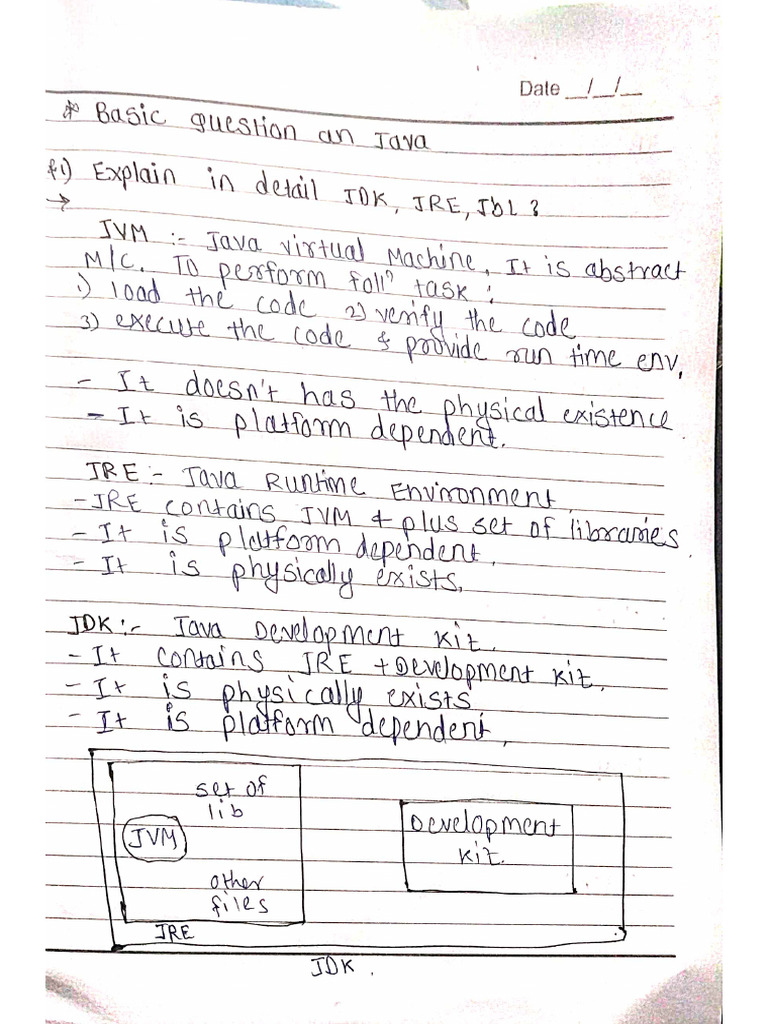 Date __/__/__
* Basic question an Java
Q1) Explain in detail JDK, JRE, JbL ?
→
JVM :- Java virtual Machine, It is abstract
M/C. To perform foll? task :
1) load the code 2) verify the code
3) execute the code & provide run time env.
- It doesn't has the physical existence
- It is platform dependent.
JRE :- Java Runtime Environment
- JRE contains JVM + plus set of libraries.
- It is platform dependent.
- It is physically exists.
JDK :- Java Development Kit.
- It contains JRE + Development kit.
- It is physically exists
- It is platform dependent.
set of
lib
JVM
Development
kit.
other
files
JRE
JDK.